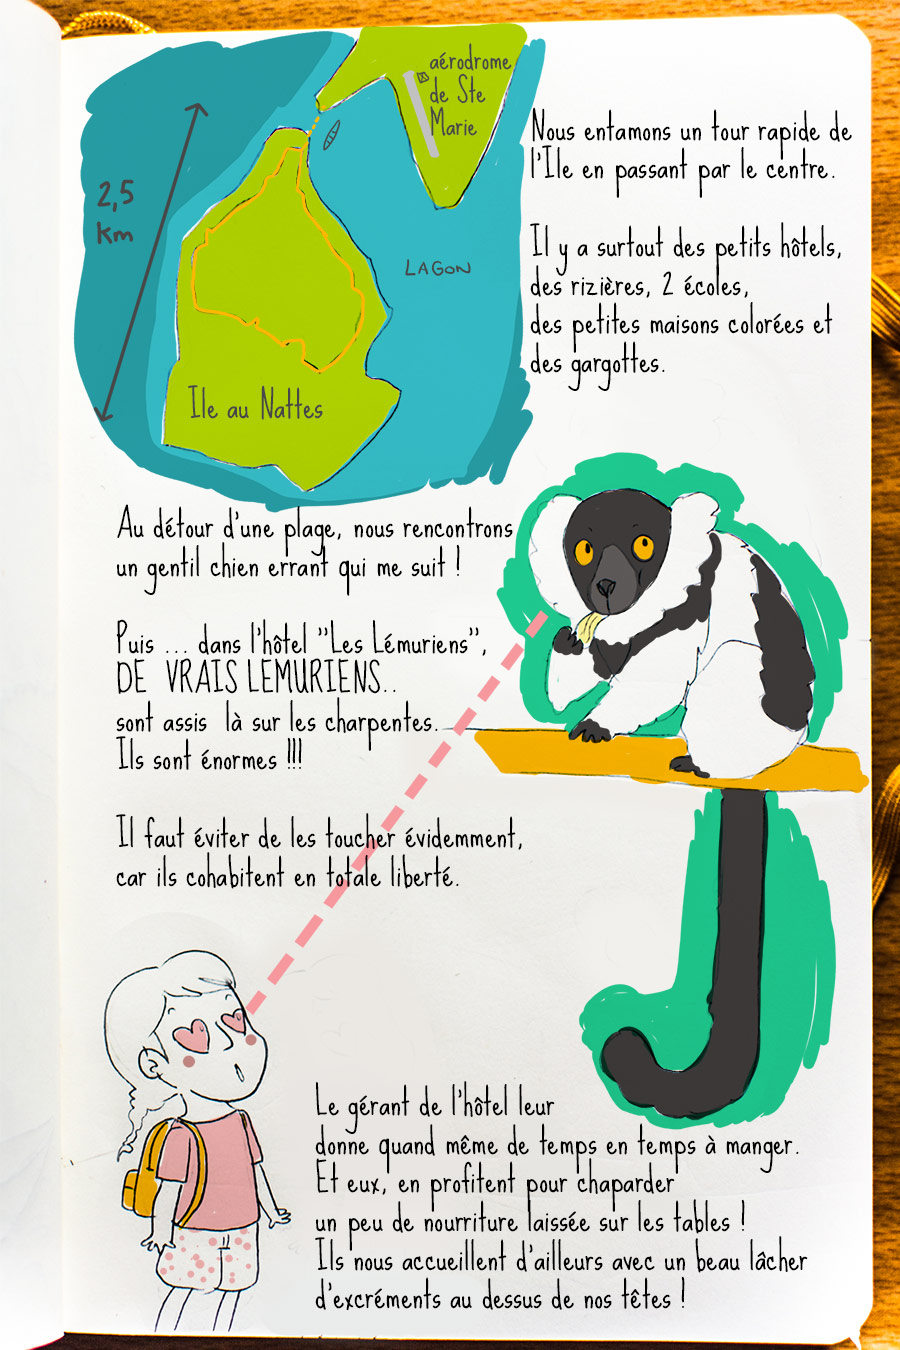 aérodrome
de Ste
Marie
2,5
km
LAGON
Ile au Nattes
Nous entamons un tour rapide de
l'Ile en passant par le centre.
Il y a surtout des petits hôtels,
des rizières, 2 écoles,
des petites maisons colorées et
des gargottes.
Au détour d'une plage, nous rencontrons
un gentil chien errant qui me suit !
Puis ... dans l'hôtel "Les Lémuriens",
DE VRAIS LEMURIENS..
sont assis là sur les charpentes.
Ils sont énormes !!!
Il faut éviter de les toucher évidemment,
car ils cohabitent en totale liberté.
Le gérant de l'hôtel leur
donne quand même de temps en temps à manger.
Et eux, en profitent pour chaparder
un peu de nourriture laissée sur les tables !
Ils nous accueillent d'ailleurs avec un beau lâcher
d'excréments au dessus de nos têtes !